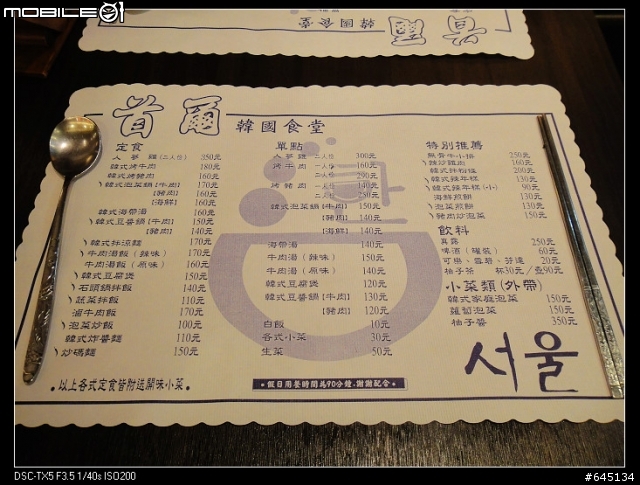 MOBILE01
首爾
韓國食堂
首爾 韓國食堂
定食
人蔘雞(二人份) 350元
韓式烤牛肉 180元
韓式烤豬肉 160元
韓式泡菜鍋【牛肉】 170元
【豬肉】 160元
【海鮮】 160元
韓式海帶湯 160元
韓式豆醬鍋【牛肉】 150元
【豬肉】
韓式拌涼麵 170元
牛肉湯飯(辣味) 170元
牛肉湯飯(原味) 160元
韓式豆腐煲 150元
石頭鍋拌飯 140元
蔬菜拌飯 110元
滷牛肉飯 170元
泡菜炒飯 100元
韓式炸醬麵 110元
炒碼麵 150元
•以上各式定食皆附送開味小菜•
單點
人蔘雞 二人份 300元
烤牛肉 一人份 160元
二人份 290元
烤豬肉 一人份 140元
二人份 250元
韓式泡菜鍋【牛肉】 150元
【豬肉】 140元
【海鮮】 140元
海帶湯 140元
牛肉湯(辣味) 150元
牛肉湯(原味) 140元
韓式豆腐煲 120元
韓式豆醬鍋【牛肉】 130元
【豬肉】 120元
白飯 10元
各式小菜 30元
生菜 50元
•假日用餐時間為90分鐘,謝謝配合•
特別推薦
無骨牛小排 250元
辣炒雞肉 160元
韓式拌粉條 200元
韓式辣年糕 130元
韓式辣年糕(小) 90元
海鮮煎餅 130元
泡菜煎餅 120元
豬肉炒泡菜 150元
飲料
真露 250元
啤酒(罐裝) 60元
可樂、雪碧、芬達 20元
柚子茶 杯30元/壺90元
小菜類(外帶)
韓式家庭泡菜 150元
蘿蔔泡菜 150元
柚子醬 350元
서울
DSC-TX5 F3.5 1/40s ISO200
#645134